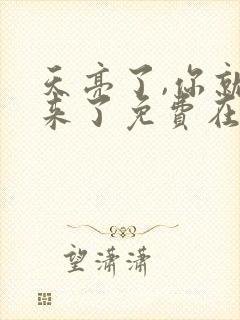 天亮了,你就
来了免費在
望潇潇